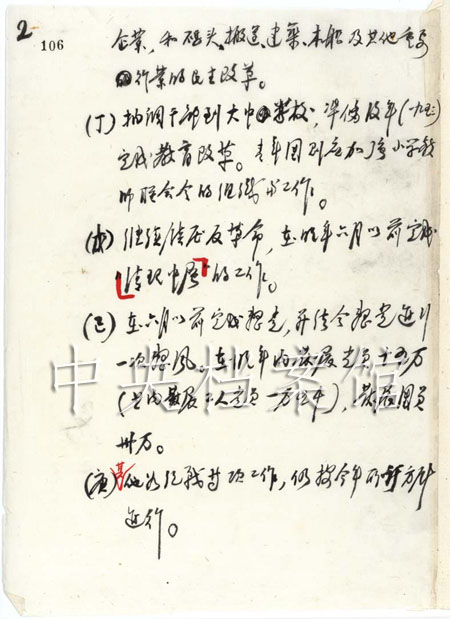 2
106
企業,和码头、搬运、建築、木船及其他重要
行業的民主改革。
(丁) 抽调干部到大中学校,準備明年(一九五二)
完成教育改革。青年团则应加强小学教
师联合会的组织与工作。
(戊) 继续镇压反革命,在明年六月以前完成
“清理中層”的工作。
(己) 在六月以前完成整党,并结合整党進行
一次整风。在明年内發展党员十五万
(其中發展工人党员一万 ),發展團员
卅万。
(庚) 其他如统战等项工作,仍按今年所 方针
進行。
中央档案馆